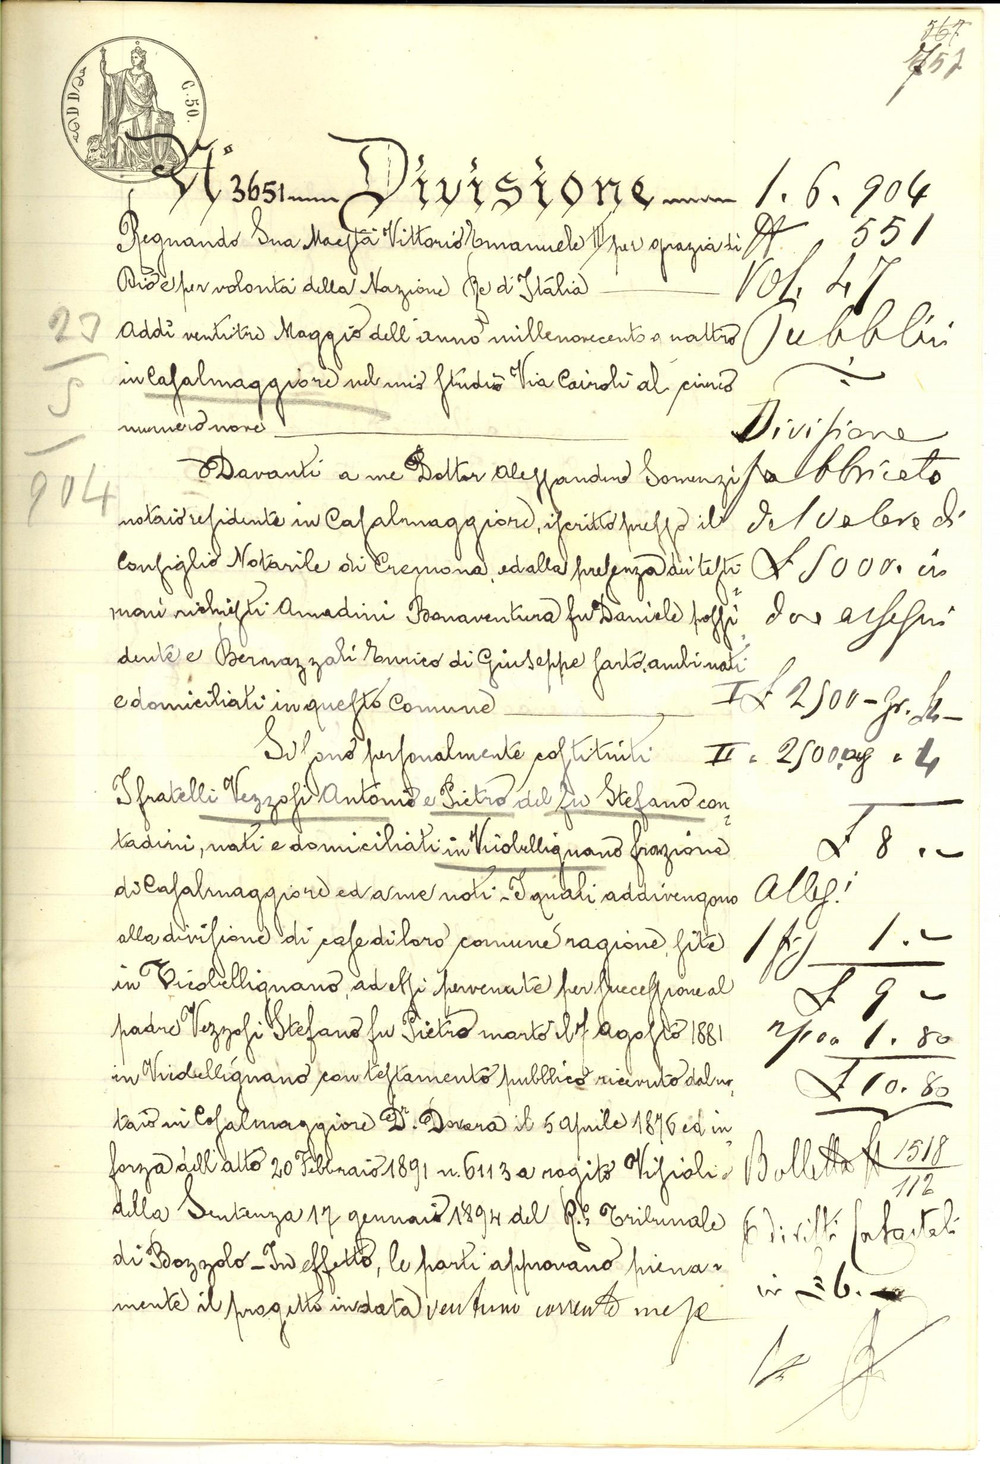 567
757
C. 50.
N° 3651 Divisione
Regnando Sua Maestà Vittorio Emanuele III per grazia di
Dio e per volontà della Nazione Re d'Italia
Addì ventitre Maggio dell'anno millenovecento quattro
in Casalmaggiore nel mio studio Via Cairoli al civico
numero nove
Davanti a me Dottor Alessandro Somenzi
notaio residente in Casalmaggiore, iscritto presso il
Consiglio Notarile di Cremona, ed alla presenza dei testi=
moni richiesti Amadini Bonaventura fu Daniele possi=
dente e Bernazzali Enrico di Giuseppe sarto, ambi nati
e domiciliati in questo Comune
Si sono personalmente costituiti
I fratelli Vezzosi Antonio e Pietro del fu Stefano con=
tadini, nati e domiciliati in Vicobellignano frazione
di Casalmaggiore ed a me noti - I quali addivengono
alla divisione di case di loro comune ragione, site
in Vicobellignano, ad essi pervenute per successione al
padre Vezzosi Stefano fu Pietro morto il 7 Agosto 1881
in Vicobellignano con testamento pubblico ricevuto dal no=
taio in Casalmaggiore Dr. Dovara il 5 Aprile 1876 ed in
forza dell'atto 20 Febbraio 1891 n. 6113 a rogito Visioli e
della Sentenza 17 gennaio 1894 del R.° Tribunale
di Bozzolo - In effetto, le parti approvano piena=
mente il progetto in data ventuno corrente mese
23
5
904
1. 6. 904
N 551
Vol. 47
Pubblici
Divisione
fabbricato
del valore di
£ 5000. in
due assegni
I £ 2500 -
II " 2500 " 4
£ 8 . -
Alleg.i
1 1. -
£ 9 -
1. 80
£ 10. 80
Bolletta N 1518
112
diritti Catastali
in £ 6. -